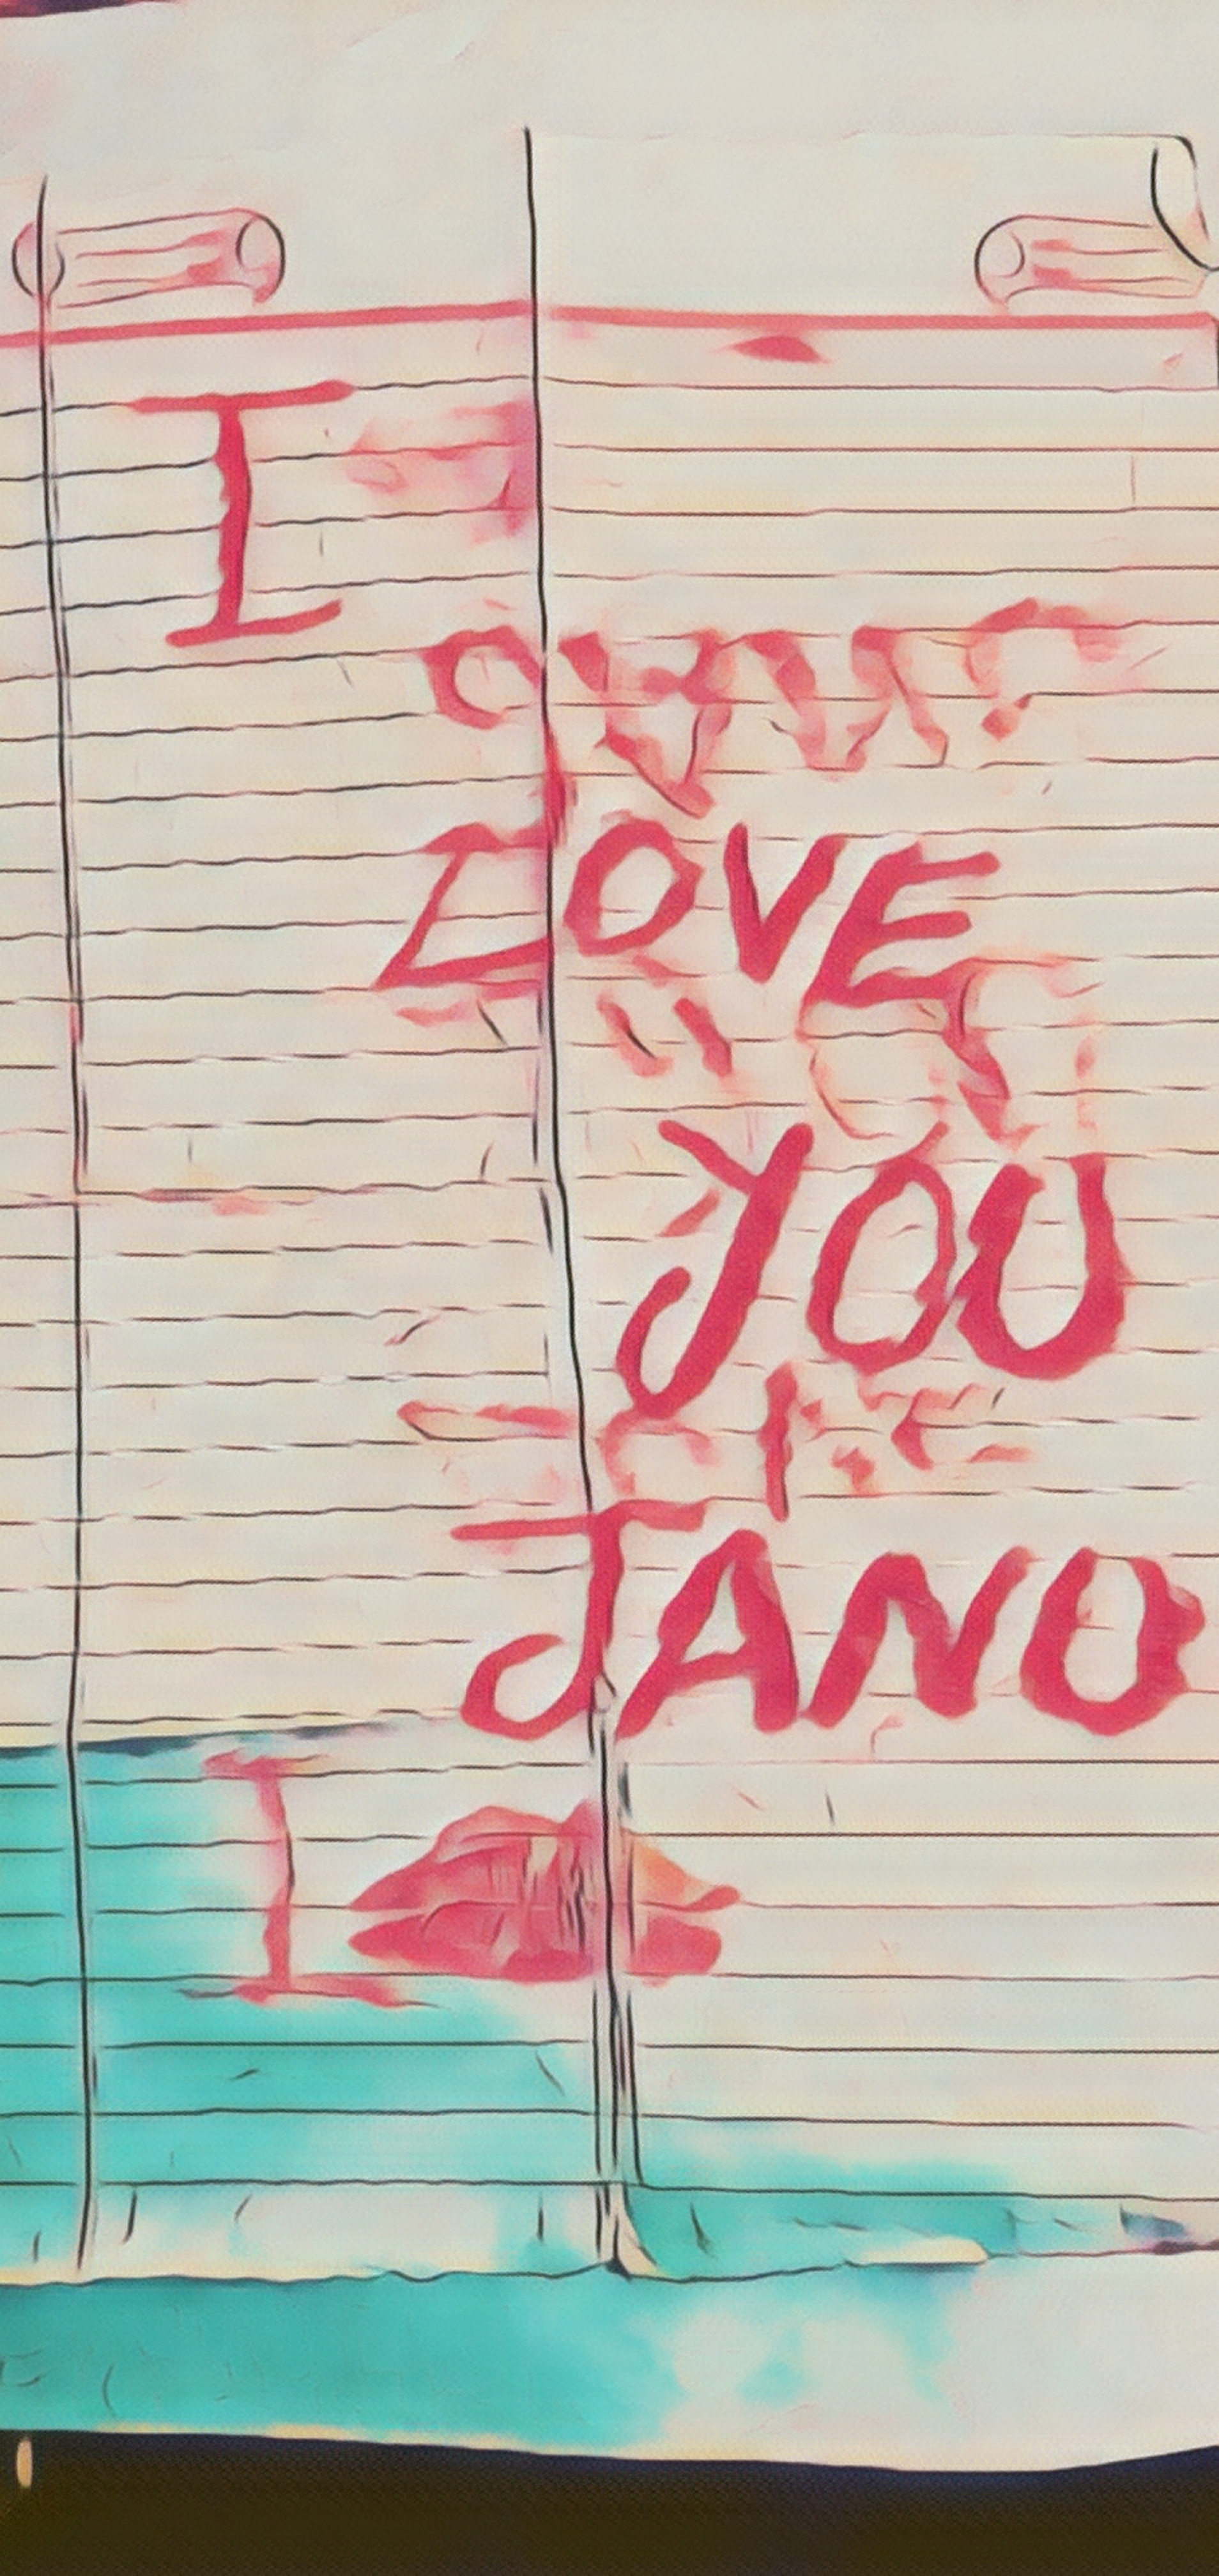 I
LOVE
YOU
JANO
I